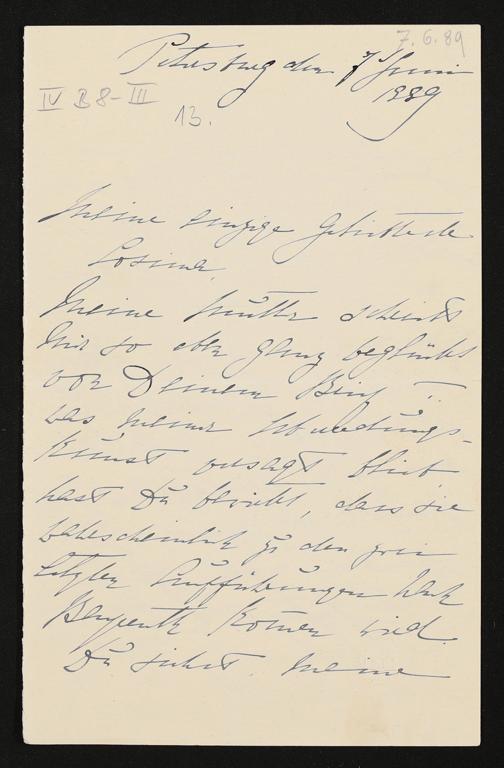 7.6.89
Petersburg den 7 Juni
1889
IV B 8-III
13.
Meine einzige Geliebteste
Cosima.
Meine Mutter schreibt
mir so eben ganz beglückt
von Deinem Brief
was meiner Überredungs-
kunst versagt blieb
hast Du bewirkt, dass sie
wahrscheinlich zu den zwei
letzten Aufführungen nach
Bayreuth komen wird.
Du siehst, meine